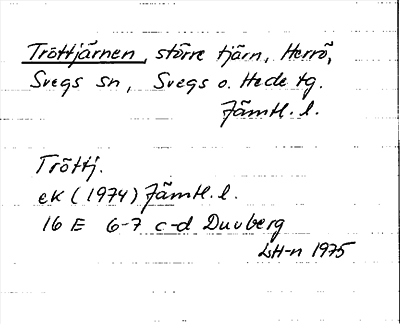 Tröttjärnen, större tjärn, Herrö,
Svegs sn, Svegs o. Hede tg.
Jämtl. l.
Tröttj.
eK (1974) Jämtl. l.
16 E 6-7 c-d Duvberg
LH-n 1975